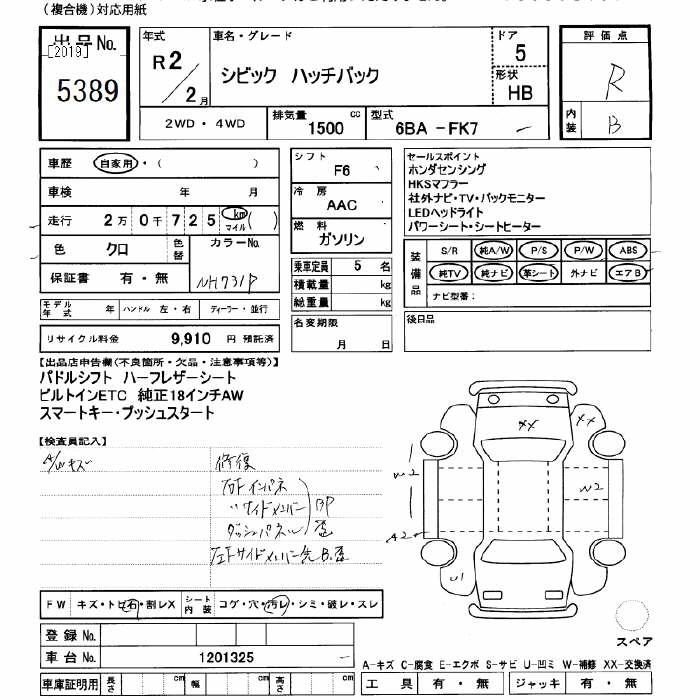 (複合機)対応用紙
出品No.
[2019]
5389
年式
R2/2月
車名・グレード
シビック ハッチバック
ドア
5
形状
HB
評価点
R
内装
B
2WD・4WD
排気量
1500 cc
型式
6BA -FK7
車歴 自家用・( )
車検 年 月
走行 2万0千725 km マイル ( )
色 クロ 色替
カラーNo.
NH731P
保証書 有・無
モデル年式 年
ハンドル 左・右
ディーラー・並行
リサイクル料金 9,910 円 預託済
シフト
F6
冷房
AAC
燃料
ガソリン
乗車定員 5 名
積載量 kg
総重量 kg
名変期限
月 日
セールスポイント
ホンダセンシング
HKSマフラー
社外ナビ・TV・バックモニター
LEDヘッドライト
パワーシート・シートヒーター
装備品
S/R 純A/W P/S P/W ABS
純TV 純ナビ 革シート 外ナビ エアB
ナビ型番:
後日品
【出品店申告欄(不良箇所・欠品・注意事項等)】
パドルシフト ハーフレザーシート
ビルトインETC 純正18インチAW
スマートキー・プッシュスタート
【検査員記入】
A/Wキズ
修復
右F インパネ
〃サイドメンバー
ダッシュパネル
BP歪
左Fサイドメンバー先B.歪
XX
XX
W2
W2
A2
U1
FW キズ・トビ石・割レX
シート内装 コゲ・穴・汚レ・シミ・破レ・スレ
登録No.
車台No. 1201325
車庫証明用 長さ cm 幅 cm 高さ cm
スペア
A-キズ C-腐食 E-エクボ S-サビ U-凹ミ W-補修 XX-交換済
工具 有・無 ジャッキ 有・無